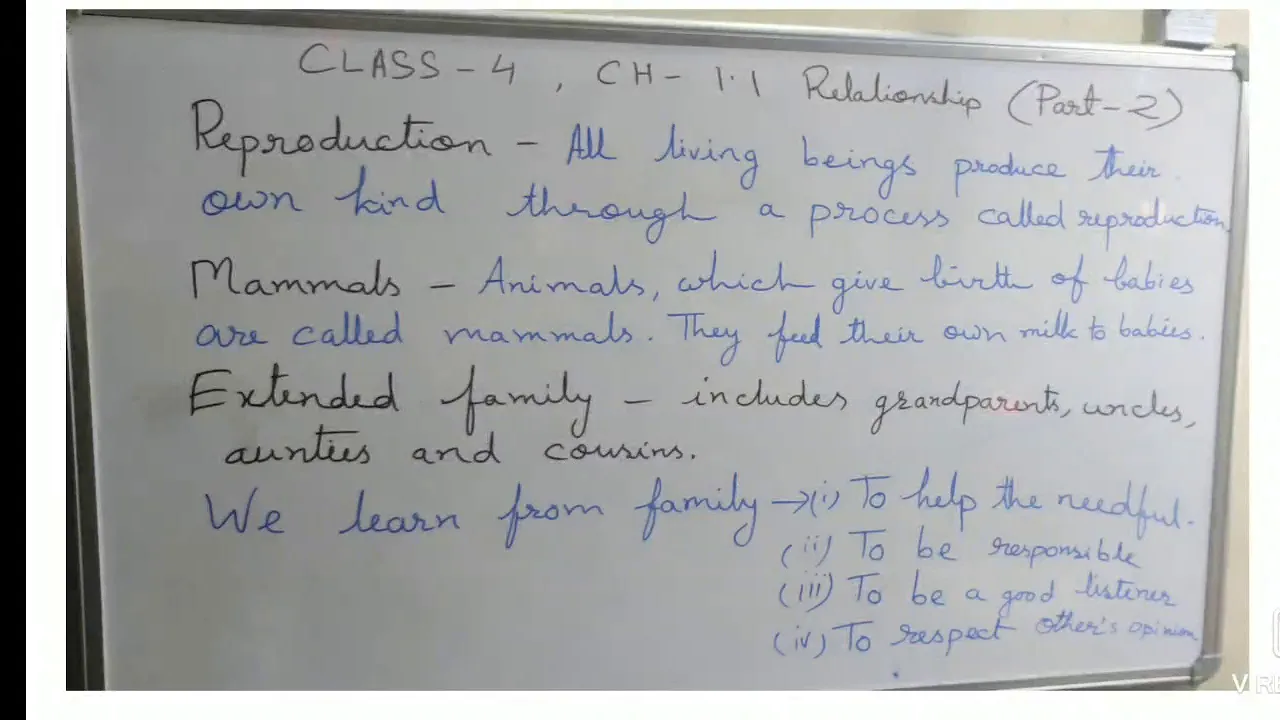 CLASS-4, CH-1.1 Relationship (Part-2)
Reproduction - All living beings produce their
own kind through a process called reproduction.
Mammals - Animals, which give birth of babies
are called mammals. They feed their own milk to babies.
Extended family - includes grandparents, uncles,
aunties and cousins.
We learn from family → (i) To help the needful.
(ii) To be responsible
(iii) To be a good listener
(iv) To respect other's opinion